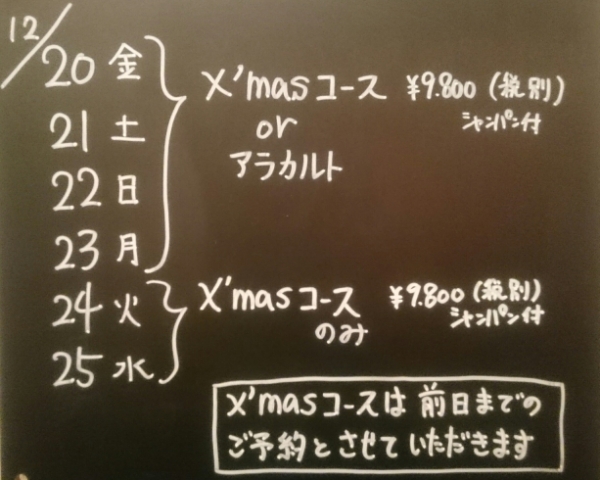 12/20 金
21 土
22 日
23 月
X'masコース ¥9.800 (税別)
シャンパン付
or
アラカルト
24 火
25 水
X'masコース ¥9.800 (税別)
シャンパン付
のみ
X'masコースは前日までの
ご予約とさせていただきます